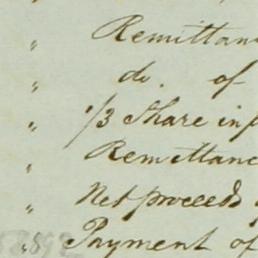 " Remittan
" do. of
" 1/3 Share in
" Remittance
" Net proceeds
" Payment of